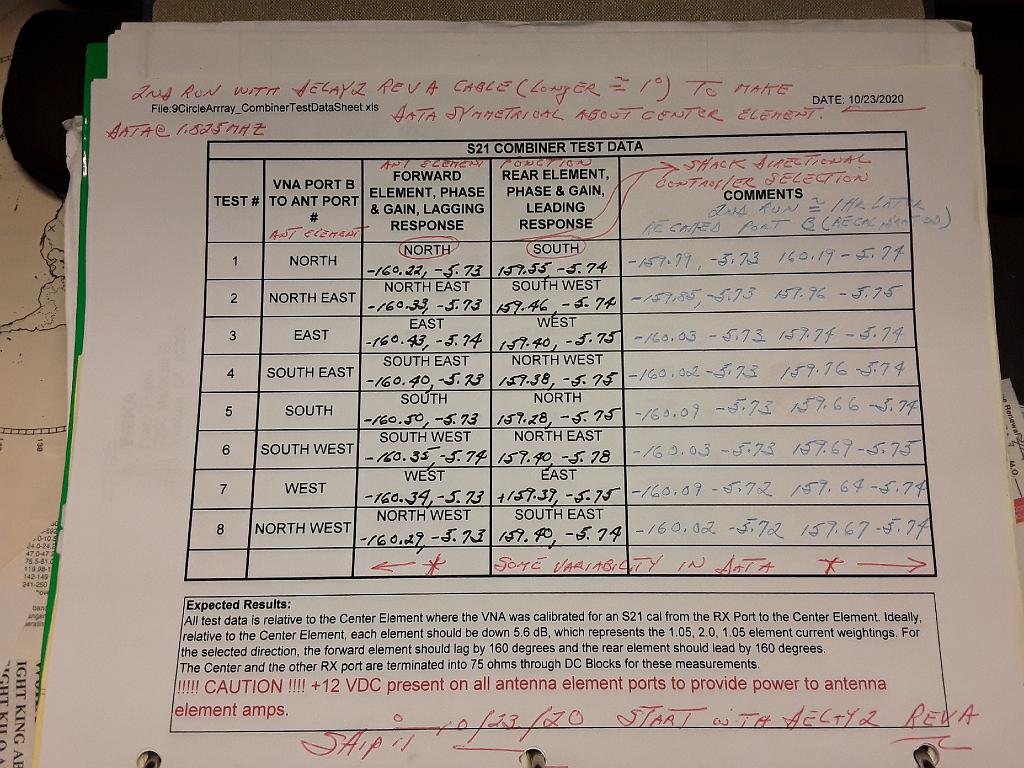 2ND RUN WITH DELAY2 REV A CABLE (LONGER ≅ 1°) TO MAKE
File:9CircleArrray_CombinerTestDataSheet.xls DATE: 10/23/2020
DATA SYMMETRICAL ABOUT CENTER ELEMENT.
DATA @ 1.825MHZ
S21 COMBINER TEST DATA
ANT ELEMENT FUNCTION SHACK DIRECTIONAL CONTROLLER SELECTION
TEST # VNA PORT B TO ANT PORT # FORWARD ELEMENT, PHASE & GAIN, LAGGING RESPONSE REAR ELEMENT, PHASE & GAIN, LEADING RESPONSE COMMENTS
ANT ELEMENT
2ND RUN ≅ 1HR LATER
PORT B
NORTH SOUTH
1 NORTH -160.22, -5.73 159.55, -5.74 -159.79, -5.73 160.19 -5.74
NORTH EAST SOUTH WEST
2 NORTH EAST -160.33, -5.73 159.46, -5.74 -159.85, -5.73 159.96 -5.75
EAST WEST
3 EAST -160.43, -5.74 159.40, -5.75 -160.03 -5.73 159.74 -5.74
SOUTH EAST NORTH WEST
4 SOUTH EAST -160.40, -5.73 159.38, -5.75 -160.02 -5.73 159.76 -5.74
SOUTH NORTH
5 SOUTH -160.50, -5.73 159.28, -5.75 -160.09 -5.73 159.66 -5.74
SOUTH WEST NORTH EAST
6 SOUTH WEST -160.35, -5.74 159.40, -5.78 -160.03 -5.73 159.69 -5.75
WEST EAST
7 WEST -160.34, -5.73 +159.39, -5.75 -160.09 -5.72 159.64 -5.74
NORTH WEST SOUTH EAST
8 NORTH WEST -160.29, -5.73 159.40, -5.74 -160.02 -5.72 159.67 -5.74
← * SOME VARIABILITY IN DATA * →
Expected Results:
All test data is relative to the Center Element where the VNA was calibrated for an S21 cal from the RX Port to the Center Element. Ideally,
relative to the Center Element, each element should be down 5.6 dB, which represents the 1.05, 2.0, 1.05 element current weightings. For
the selected direction, the forward element should lag by 160 degrees and the rear element should lead by 160 degrees.
The Center and the other RX port are terminated into 75 ohms through DC Blocks for these measurements.
!!!!! CAUTION !!!! +12 VDC present on all antenna element ports to provide power to antenna
element amps.
10/23/20 START WITH DELAY2 REV A